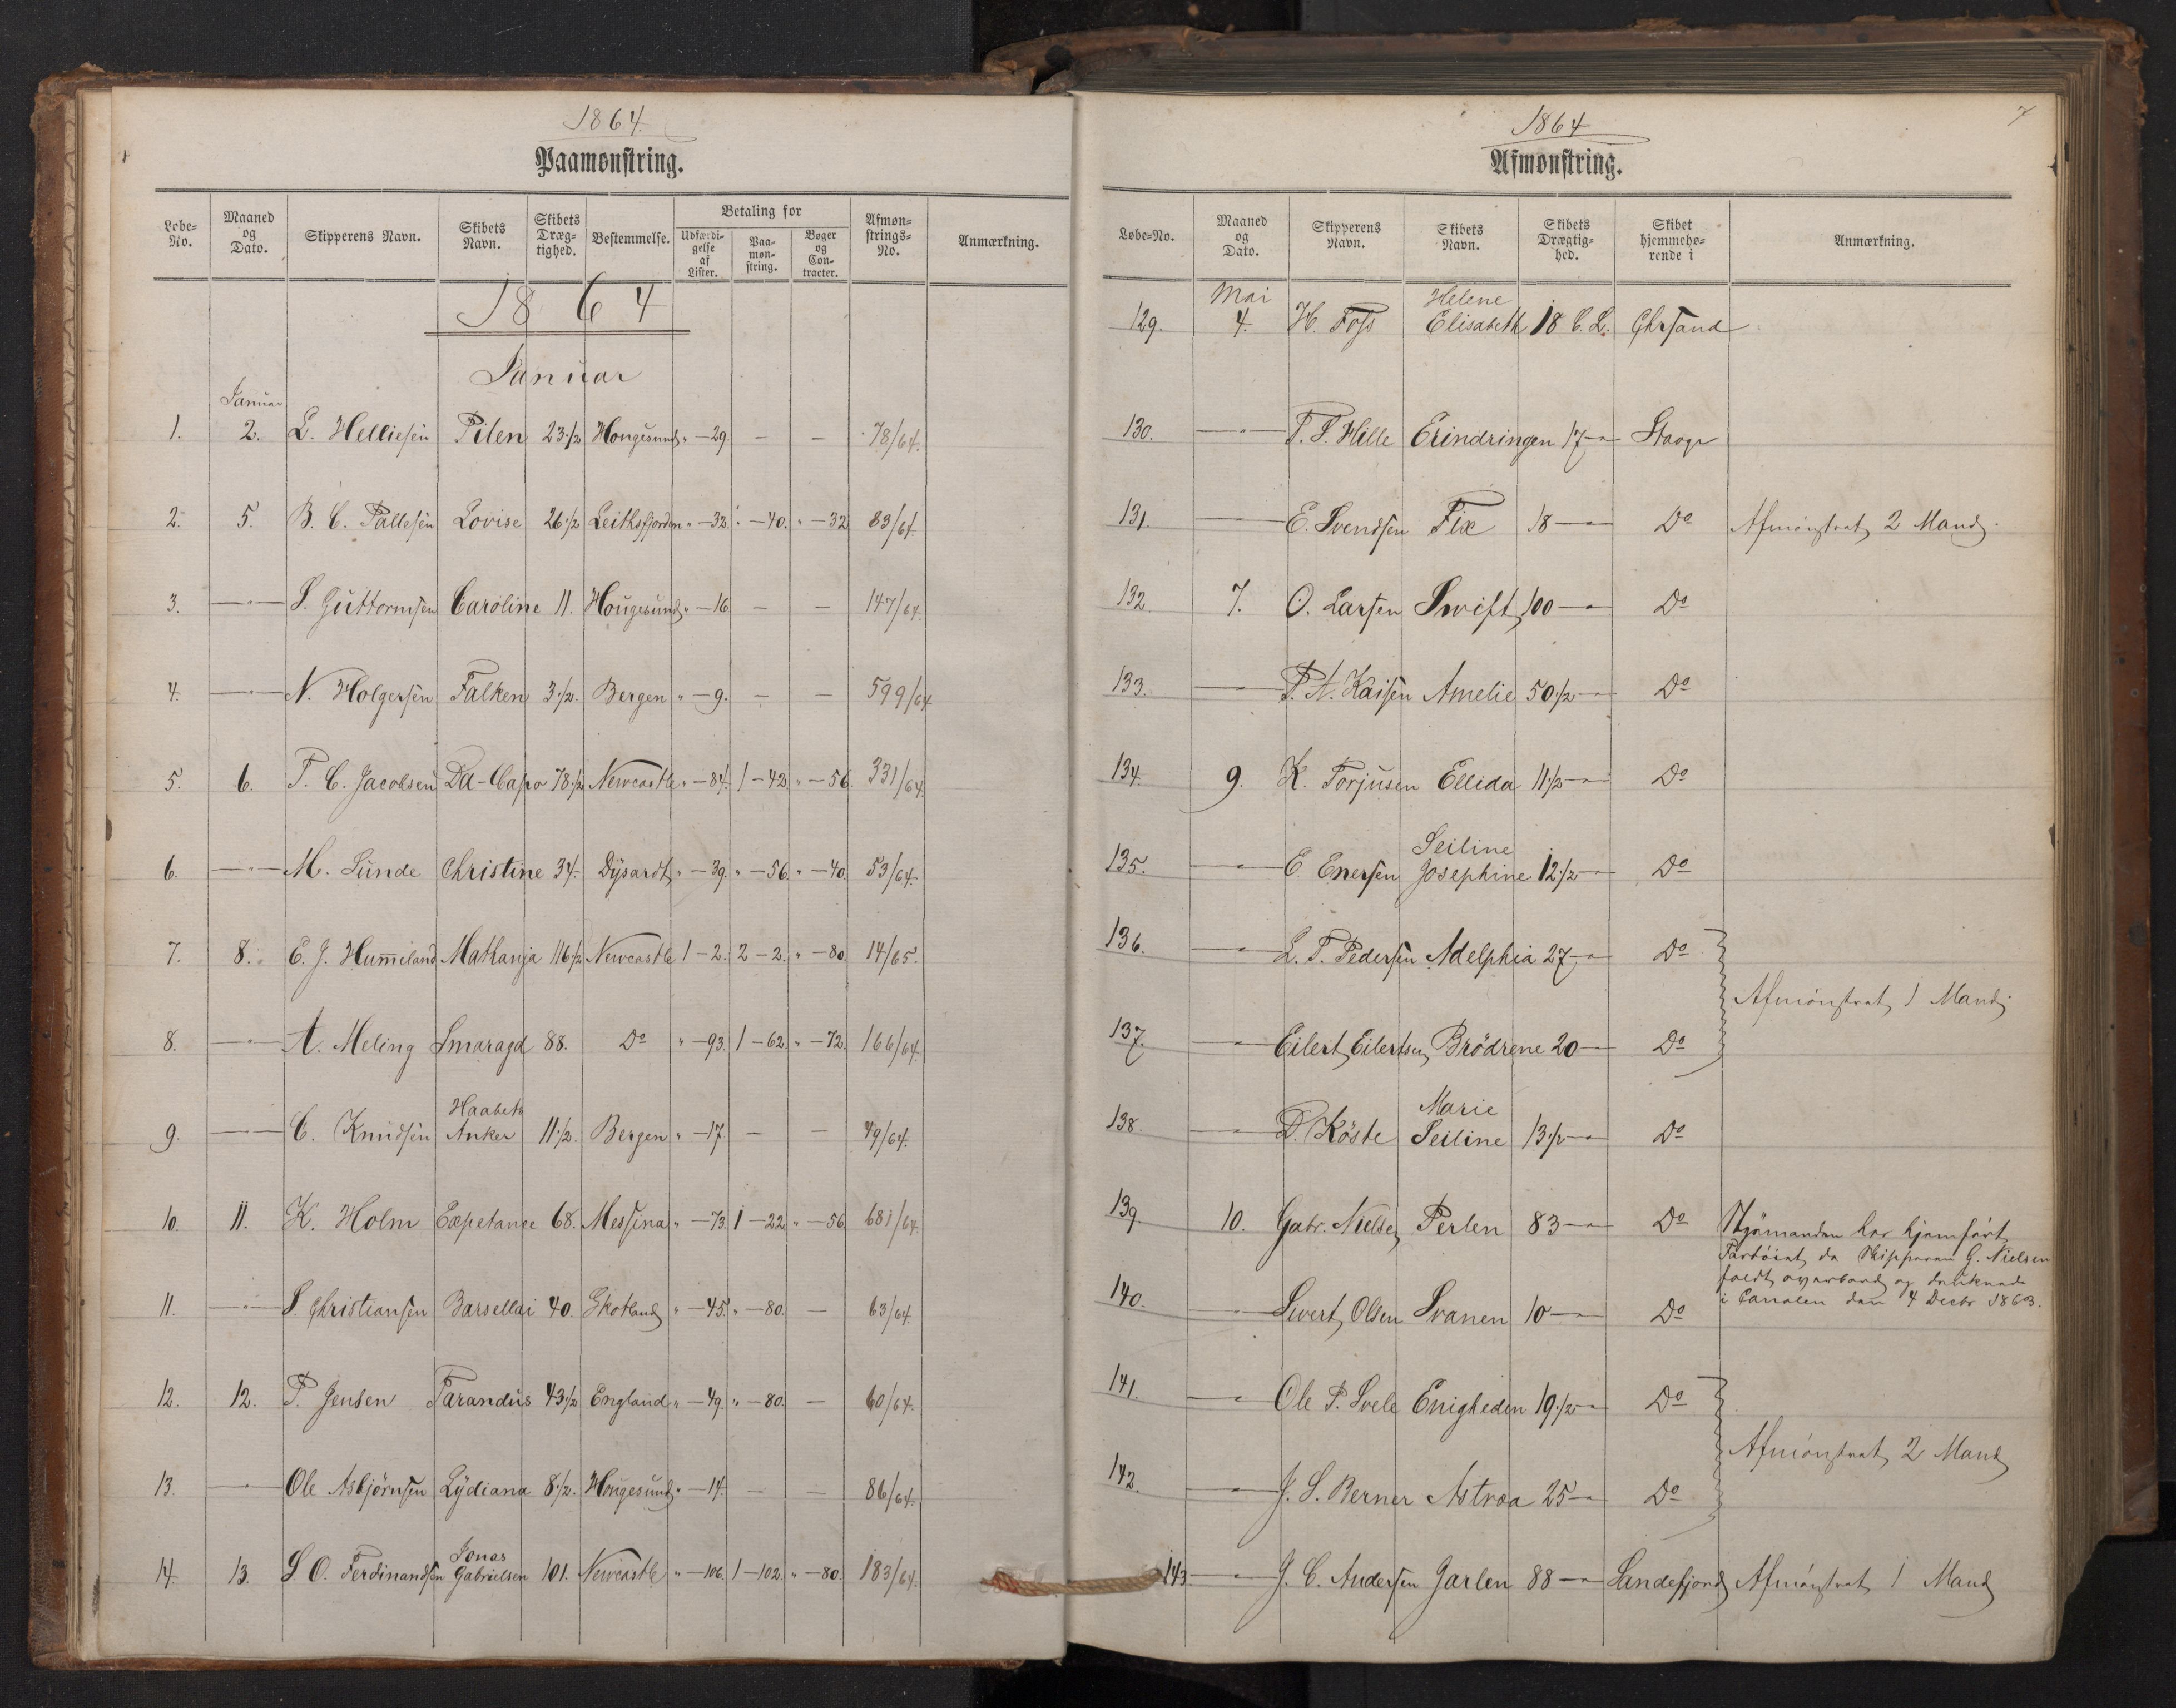 1864.
Paamønstring.
Løbe-No. | Maaned og Dato. | Skipperens Navn. | Skibets Navn. | Skibets Dræg-tighed. | Bestemmelse. | Betaling for Udfærdi-gelse af Lister. | Paa-møn-string. | Bøger og Con-tracter. | Afmøn-strings-No. | Anmærkning.
1864
Januar
Januar
1. 2. L. Helliesen Pilen 23 1/2 Hougesund " — 29. — — 78/64.
2. 5. B. C. Pallesen Lovise 26 1/2 Leithsfjorden " — 32. " — 40. " — 32 83/64.
3. — " — S. Guttormsen Caroline 11. Hougesund " — 16. — — 147/64.
4. — " — N. Holgersen Falken 3 1/2. Bergen " — 9. — — 599/64
5. 6. T. C. Jacobsen Da-Capo 78 1/2 Newcastle " — 84. 1 — 42. " — 56. 331/64.
6. — " — M. Sunde Christine 34. Dysardt " — 39. " — 56. " — 40. 53/64.
7. 8. E. J. Hum̅eland Mathanja 116 1/2 Newcastle 1 — 2. 2 — 2. " — 80. 14/65.
8. — " — A. Meling Smaragd 88. Do " — 93. 1 — 62. " — 72. 166/64.
9. — " — C. Knudsen Haabets Anker 11 1/2. Bergen " — 17. — — 49/64.
10. 11. K. Holm Expetance 68. Messina " — 73. 1 — 22. " — 56. 681/64.
11. — " — S. Christiansen Barsellai 40. Skotland " — 45. " — 80. — 63/64.
12. 12. P. Jensen Tarandus 43 1/2 England " — 49. " — 80. — 60/64.
13. — " — Ole Asbjørnsen Lydiana 8 1/2. Hougesund " — 14. — — 86/64.
14. 13. S. O. Ferdinandsen Jonas Gabrielsen 101. Newcastle " — 106. 1 — 102. " — 80. 183/64.
7
1864
Afmønstring.
Løbe-No. | Maaned og Dato. | Skipperens Navn. | Skibets Navn. | Skibets Drægtig-hed. | Skibet hjemmehø-rende i | Anmærkning.
129. Mai 4. H. Foss Helene Elisabeth 18 C. L. Chrsand
130. — " — T. T. Hille Erindringen 17 — " Stavgr
131. — " — E. Svendsen Fix 18 — " Do Afmønstret 2 Mand.
132. 7. O. Larsen Swift 100 — " Do
133. — " — P. A. Kaisen Amelie 50 1/2 — " Do
134. 9. K. Torjusen Ellida 11 1/2 — " Do
135. — " — E. Enersen Seiline Josephine 12 1/2 — " Do
136. — " — L. T. Pedersen Adelphia 27 — " Do
Afmønstret 1 Mand.
137. — " — Eilert Eilertsen Brødrene 20 — " Do
138. — " — D. Køste Marie Seiline 13 1/2 — " Do
139. 10. Gabr. Nielsen Perlen 83 — " Do Styrmanden har hjemført
Fartøiet, da Skipperen G. Nielsen
faldt overbord og druknede
i Canalen den 4 Decbr 1863.
140. — " — Sivert Olsen Svanen 10 — " Do
141. — " — Ole P. Svele Enigheden 19 1/2 — " Do
Afmønstret 2 Mand
142. — " — J. S. Berner Astræa 25 — " Do
143. — " — J. C. Andersen Jarlen 88 — " Sandefjord Afmønstret 1 Mand